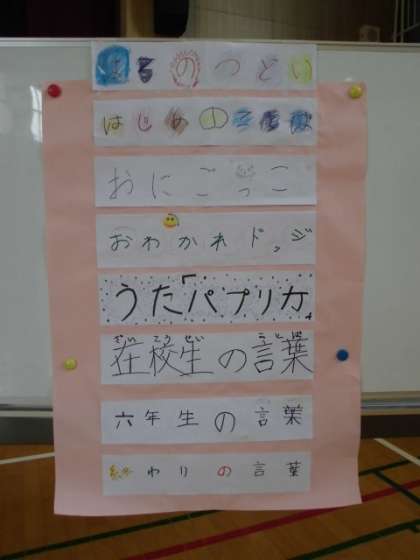 はるのつどい
はじめの言葉
おにごっこ
おわかれドッジ
うた「パプリカ」
ざいこうせい ことば
在校生の言葉
六年生の言葉
終わりの言葉